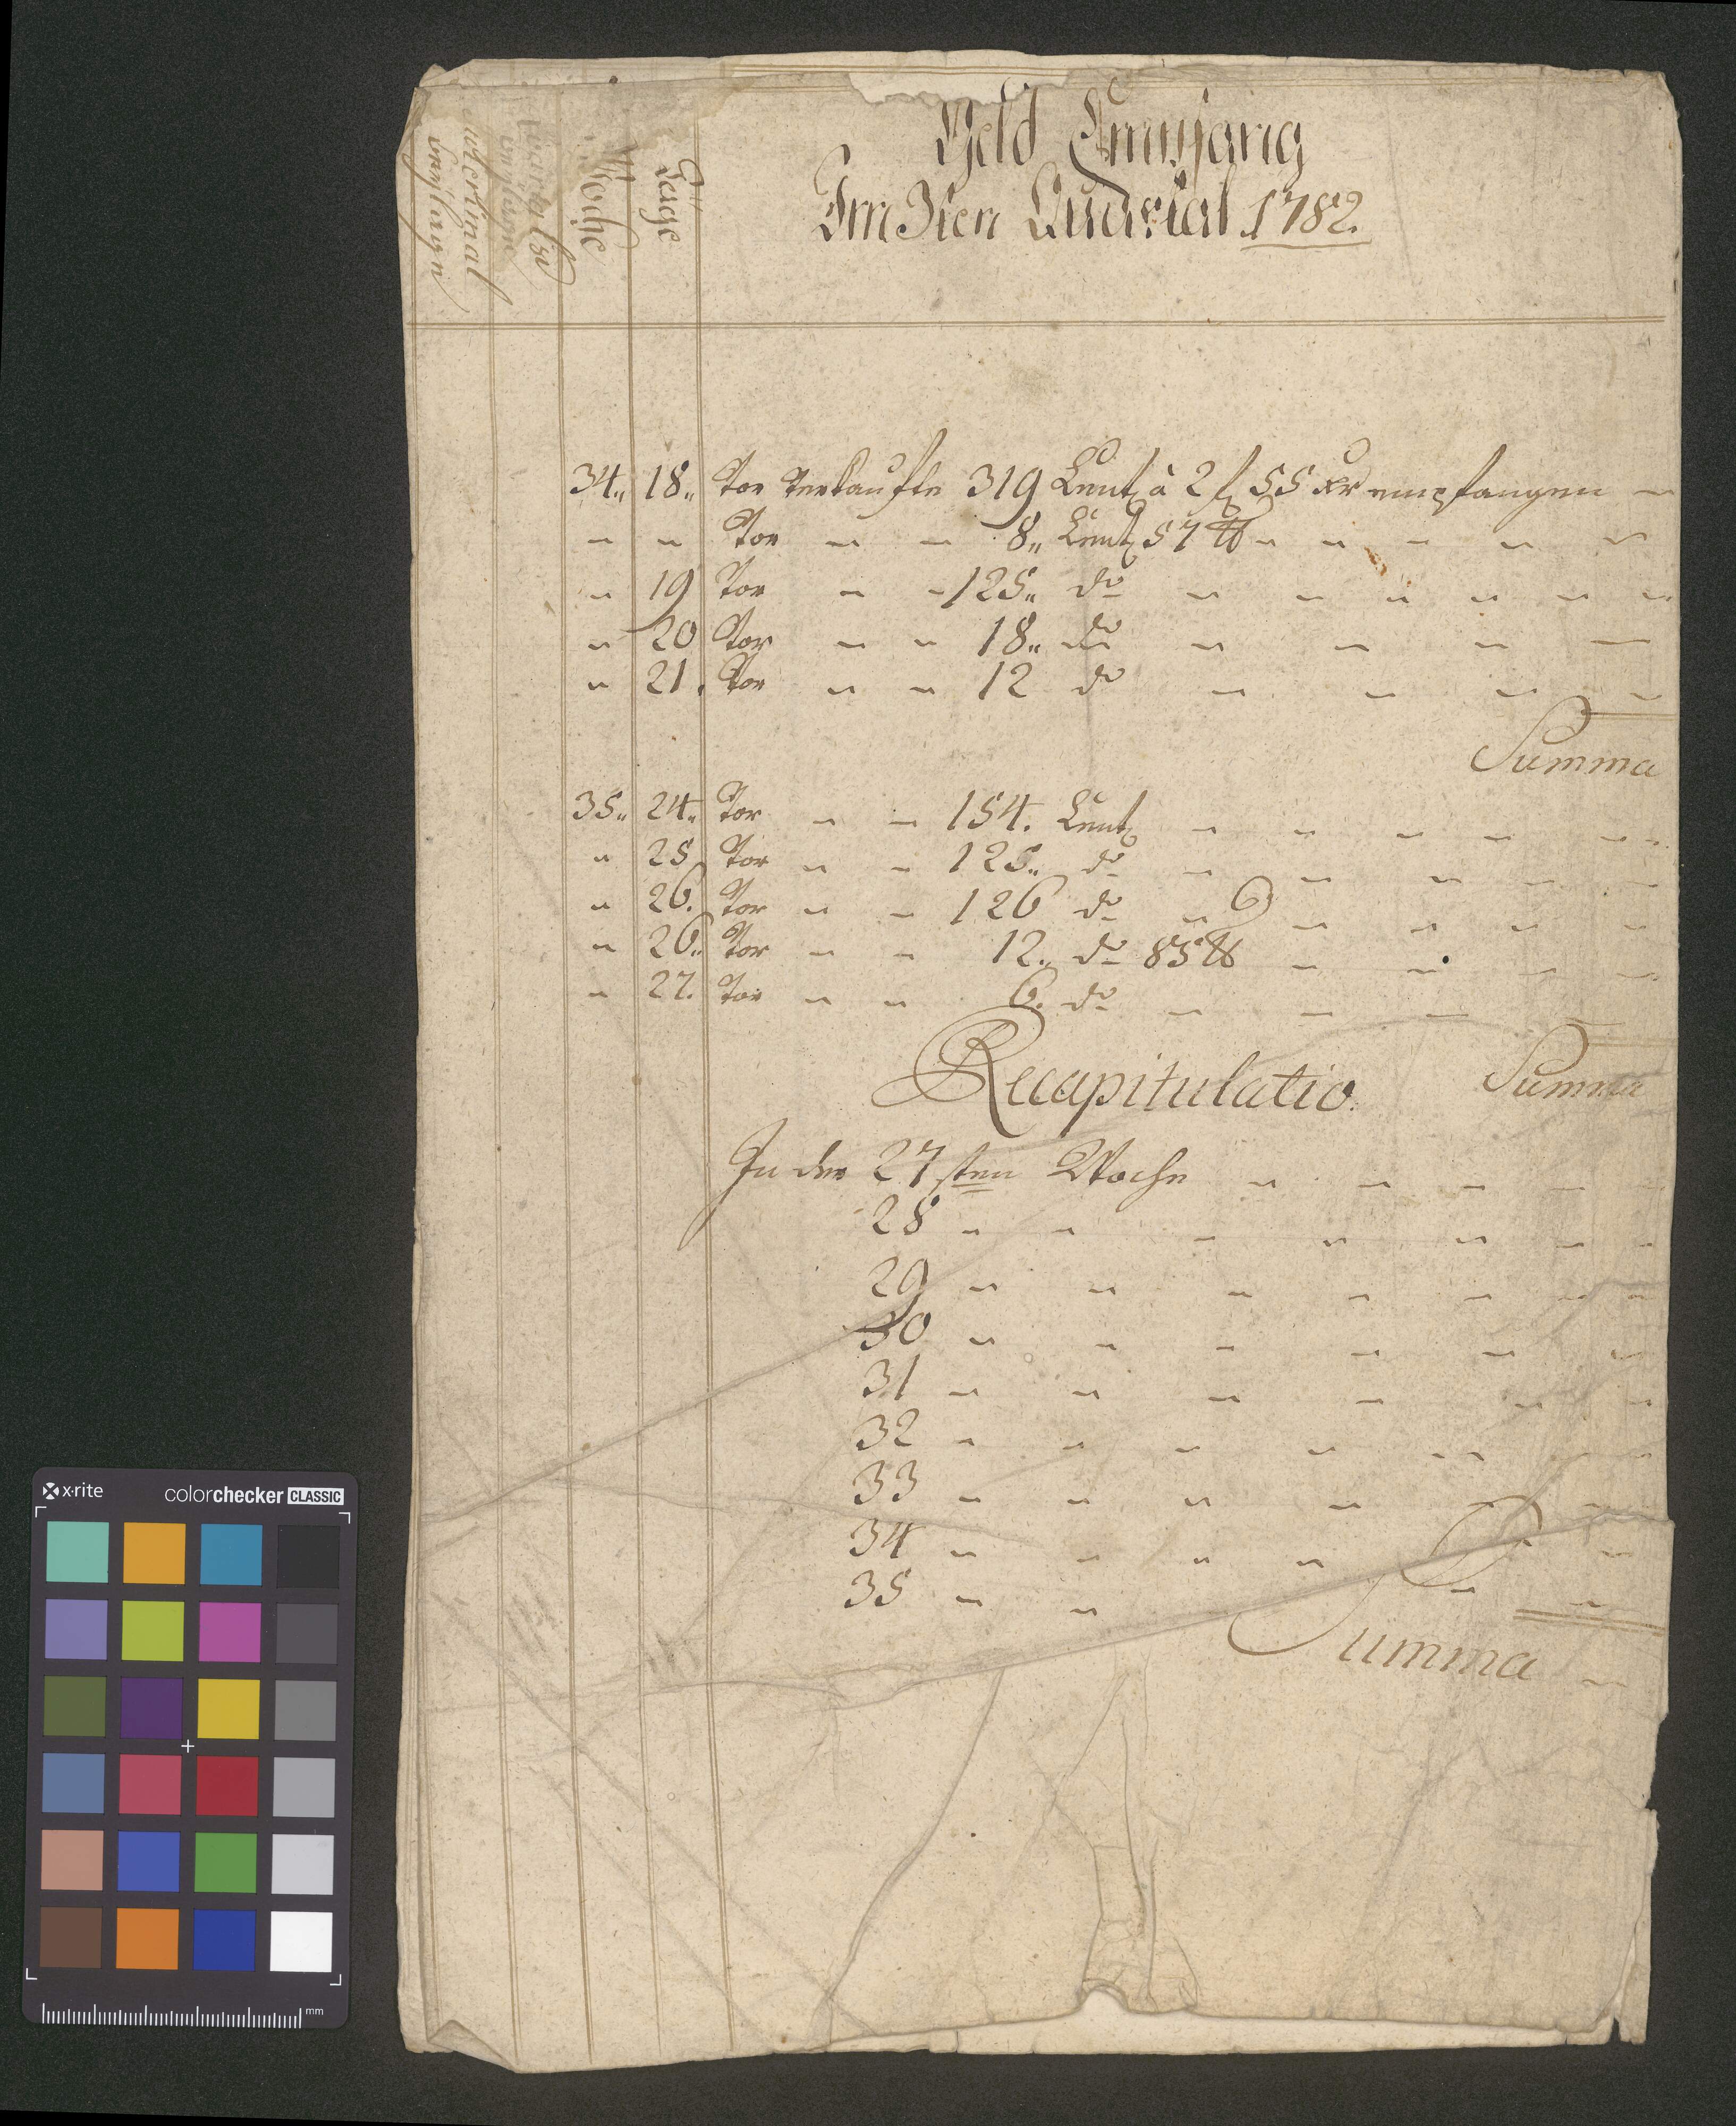 Geld Empfang
Im 3ten Quartal 1782.
Täge
Woche
beÿlagen
34„ 18„ Vor verkaufte 319 Centz à 2 f 55 xr empfangen –
„ „ Vor „ „ 8„ Centz 57 ℔ „ „ „ „ „
„ 19 Vor „ „ 125„ do „ „ „ „ „ „
„ 20 Vor „ „ 18„ do „ „ „ –
„ 21. Vor „ „ 12 do „ „ „ „
Summa
35„ 24„ Vor „ „ 154. Centz „ „ „ „ „ „
„ 25 Vor „ „ 125„ do „ „ „ „ „
„ 26. Vor „ „ 126 do „ „ „ „ „
„ 26„ Vor „ „ 12„ do 85 ℔ „ „ „ „
„ 27. Vor „ „ 6. do „ „ –
Summa
Recapitulatio.
In der 27sten Woche „ „ „ „ „
28 „ „ „ „ „ „ „
29 „ „ „ „ „ „ „
30 „ „ „ „ „ „
31 „ „ „ „ „ „
32 „ „ „ „ „ „ „
33 „ „ „ „ „ „
34 „ „ „ „ „
35 „ „ „ „
Summa „
x·rite colorchecker CLASSIC
mm